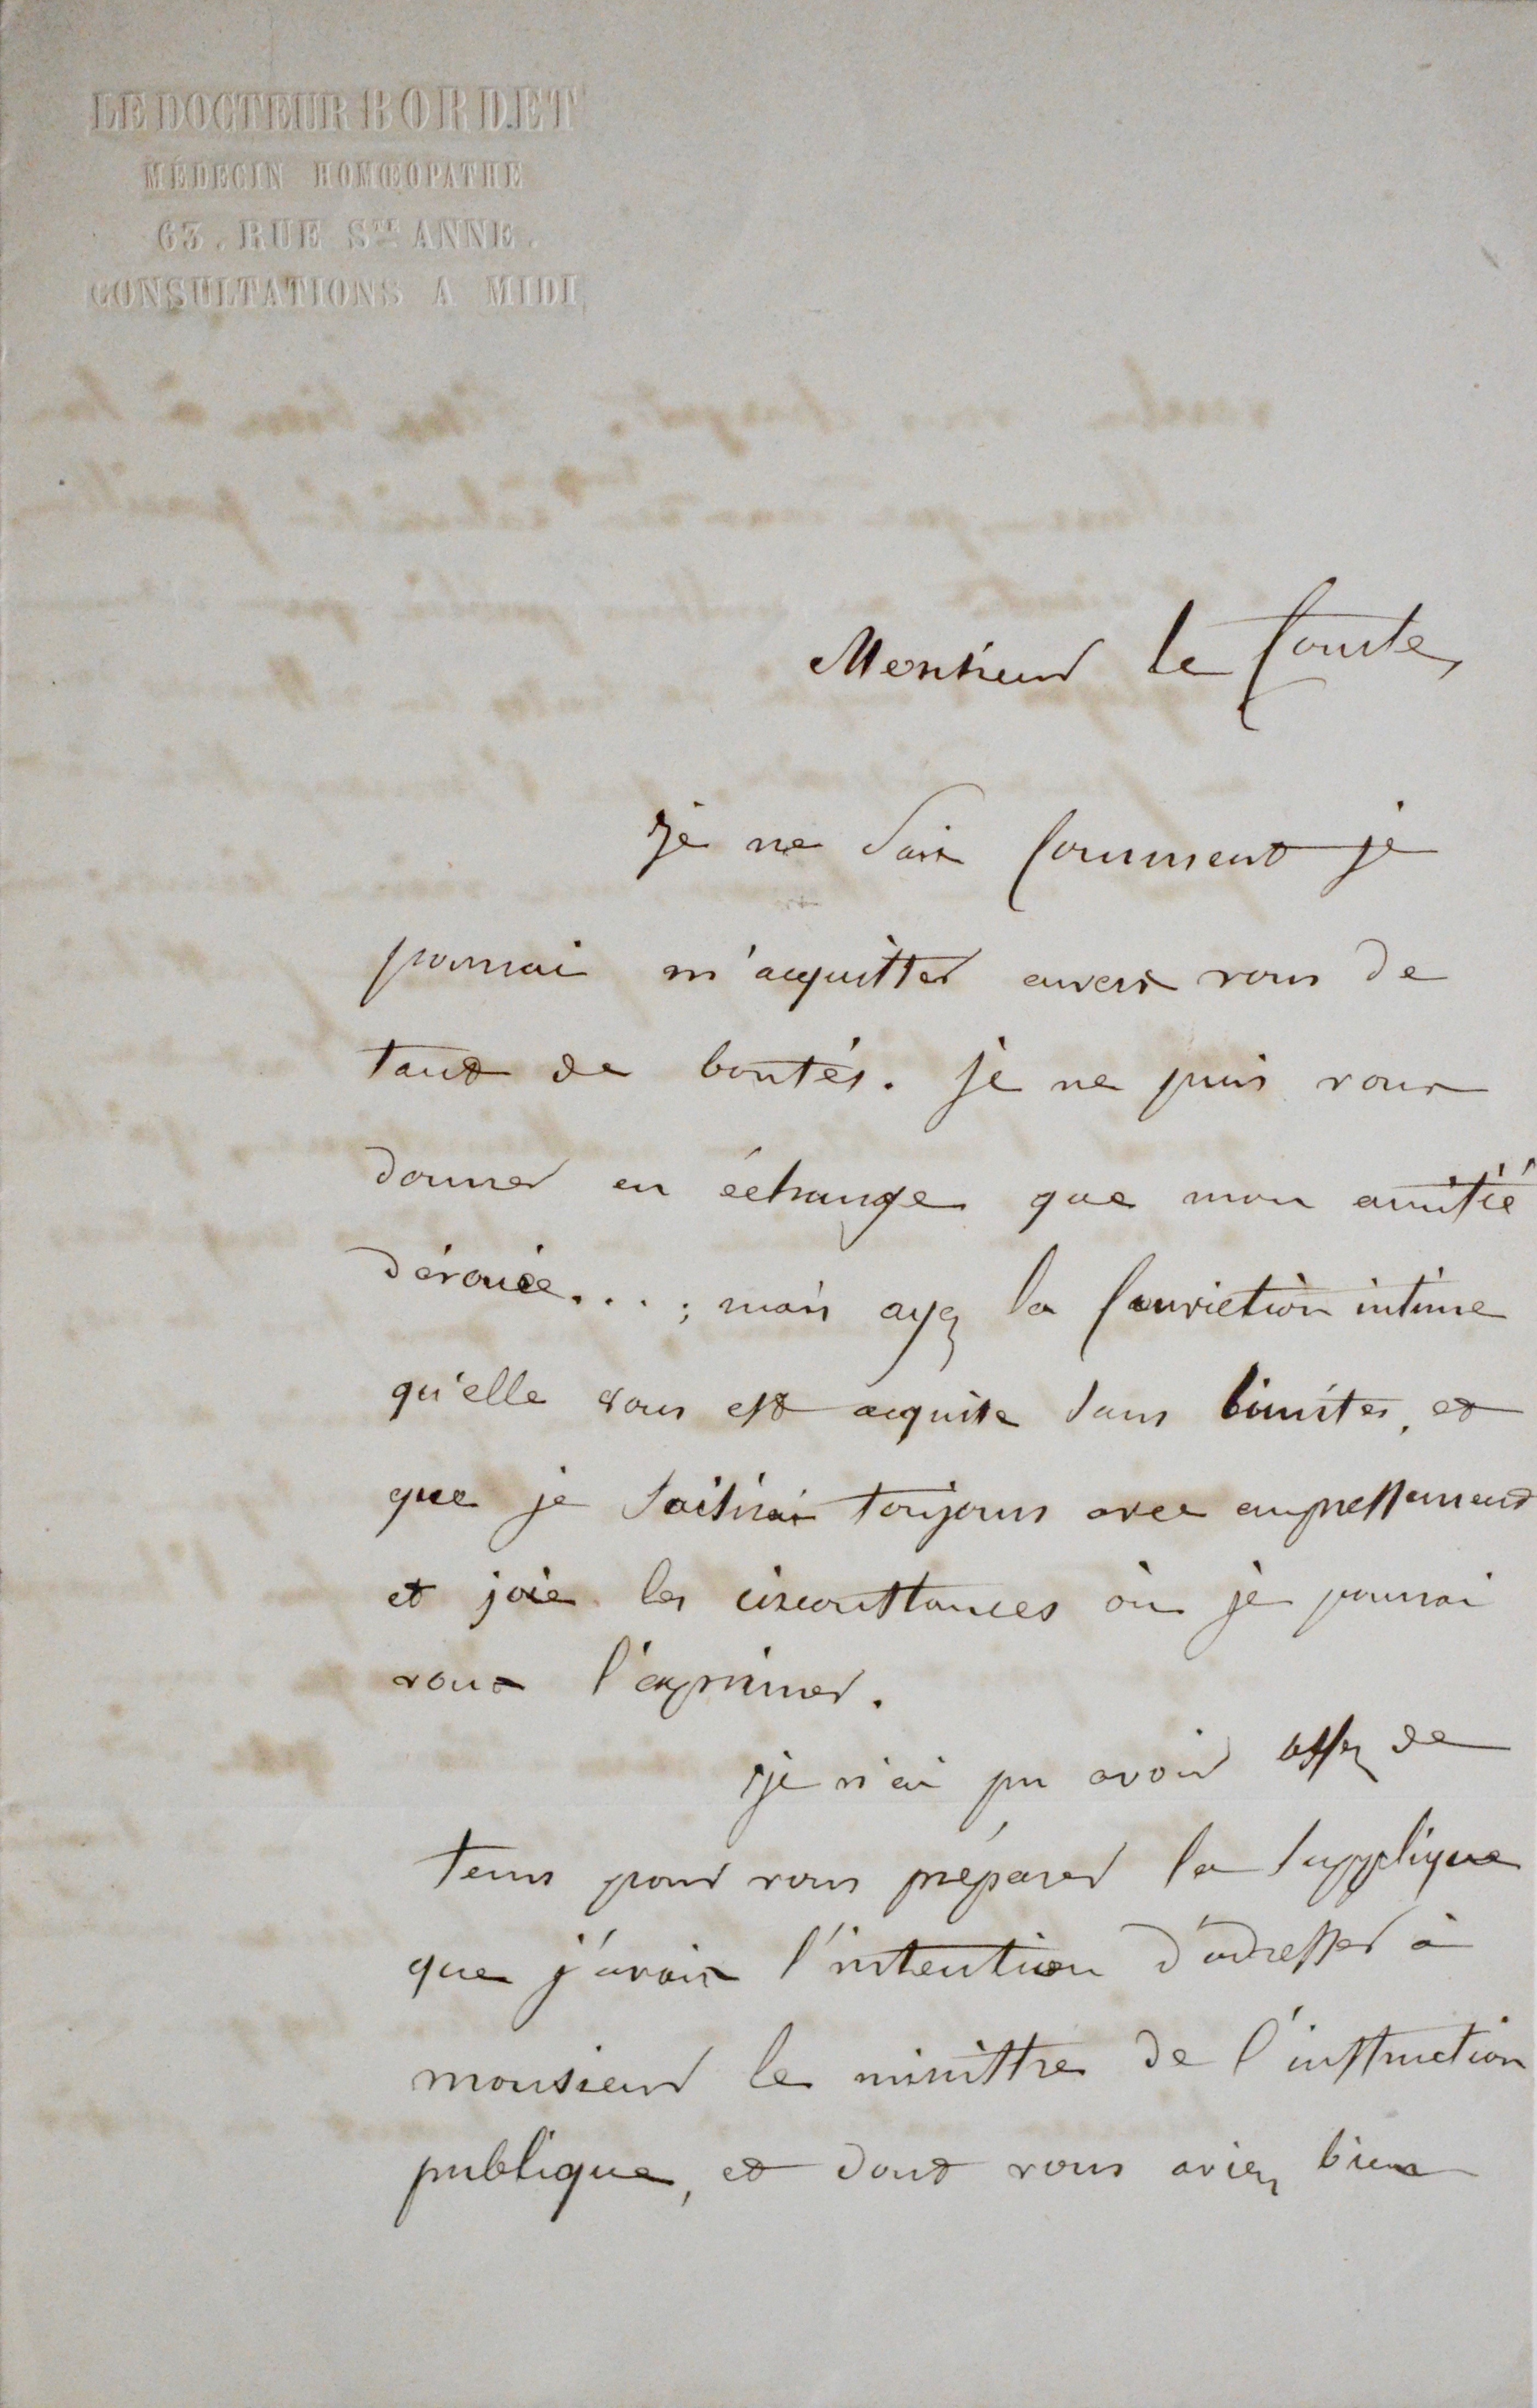 LE DOCTEUR BORDET
MÉDECIN HOMŒOPATHE
63. RUE Sᵗᵉ ANNE.
CONSULTATIONS A MIDI
Monsieur le Comte,
Je ne sais comment je
pourrai m'acquitter envers vous de
tant de bontés. Je ne puis vous
donner en échange que mon amitié
dévouée....; mais ayez la conviction intime
qu'elle vous est acquise sans limites, et
que je saisirai toujours avec empressement
et joie les circonstances où je pourrai
vous l'exprimer.
Je n'ai pu avoir assez de
tems pour vous préparer la supplique
que j'avais l'intention d'adresser à
monsieur le ministre de l'instruction
publique, et dont vous aviez bien